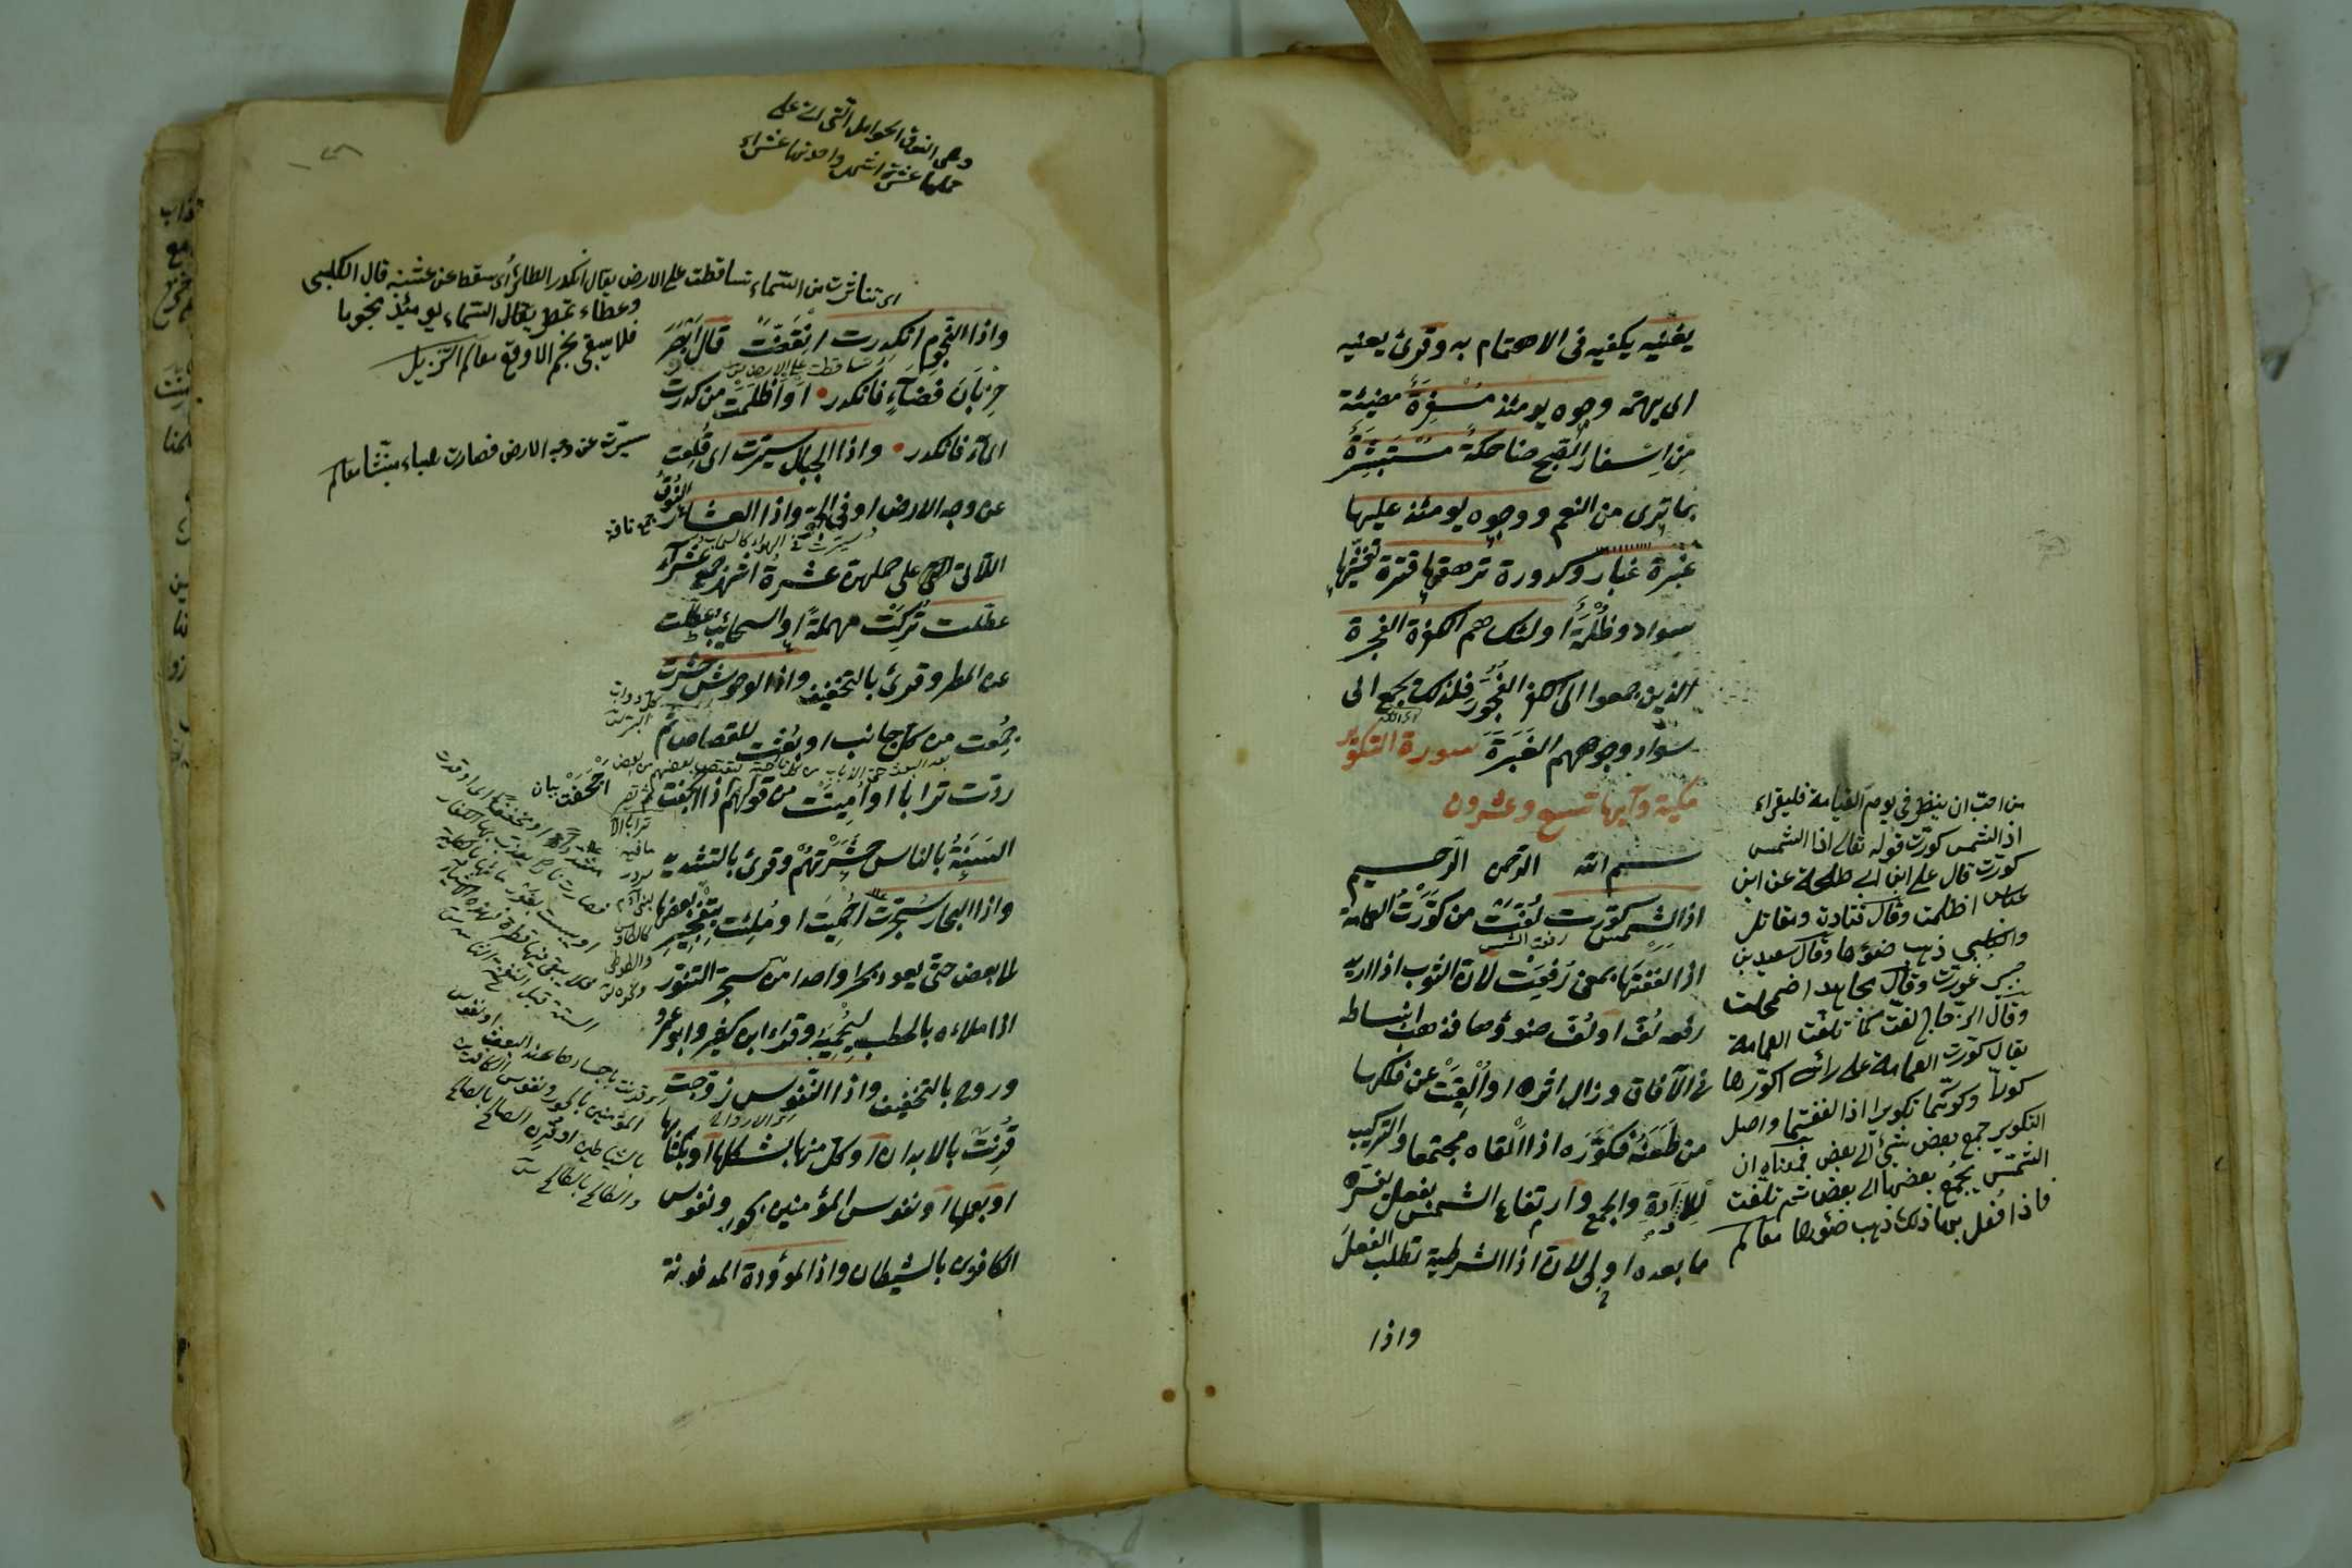 يغنيه يكفيه فى الاهتمام به وقرئ يعنيه
اى يهمه وجوه يومئذ مسفرة مضيئة
من اسفار الصبح ضاحكة مستبشرة
بما ترى من النعم ووجوه يومئذ عليها
غبرة غبار وكدورة ترهقها قترة تغشيها
سواد وظلمة اولئك هم الكفرة الفجرة
الذين جمعوا الى الكفر الفجور فلذلك يجمع الى
سواد وجوههم الغبرة سورة التكوير
مكية وآيها تسع وعشرون
بسم الله الرحمن الرحيم
اذا الشمس كورت لفت من كورت العمامة
اذا لففتها بمعنى رفعت لان الثوب اذا اريد
رفعه لف او لف ضوؤها فذهب انبساطه
فى الآفاق وزال اثره او القيت عن فلكها
من طعنه فكوره اذا القاه مجتمعا والتركيب
للادارة والجمع وارتفاع الشمس بفعل يفسره
ما بعده اولى لان اذا الشرطية تطلب الفعل
واذا
من احب ان ينظر فى يوم القيامة فليقراء
اذا الشمس كورت قوله تعالى اذا الشمس
كورت قال على ابن ابى طلحة عن ابن
عباس اظلمت وقال قتادة ومقاتل
والكلبى ذهب ضوءها وقال سعيد بن
جبير غورت وقال مجاهد اضمحلت
وقال الزجاج لفت كما تلفت العمامة
يقال كورت العمامة على رأسى اكورها
كورا وكورتها تكويرا اذا لففتها واصل
التكوير جمع بعض شئ الى بعض فمعناه ان
الشمس يجمع بعضها الى بعض ثم تلفت
فاذا فعل بها ذلك ذهب ضوءها معالم
وهى النوق الحوامل التى اتت على
حملها عشرة اشهر واحدتها عشراء
اى تناثرت من السماء تساقطت على الارض يقال انكدر الطائر اى سقط عن عشه قال الكلبى
وعطاء تمطر يقال السماء يومئذ نجوما
فلا يبقى نجم الا وقع معالم التنزيل
واذا النجوم انكدرت انقضت قال ابصر
خربان فضاء فانكدر او اظلمت من كدرت
الماء فانكدر واذا الجبال سيرت اى قلعت
سيرت عن وجه الارض فصارت هباء منبثا معالم
عن وجه الارض او فى الجو واذا العشار النوق
جمع ناقة
اللاتى اتى على حملهن عشرة اشهر جمع عشراء
عطلت تركت مهملة او السحائب عطلت
عن المطر وقرئ بالتخفيف واذا الوحوش حشرت
جمعت من كل جانب او بعثت للقصاص ثم
ردت ترابا او اميتت من قولهم اذا اجحفت
السنة بالناس حشرتهم وقرئ بالتشديد
واذا البحار سجرت احميت او ملئت بتفجير بعضها
الى بعض حتى يعود بحرا واحدا من سجر التنور
اذا ملاءه بالحطب ليحميه وقراء ابن كثير وابو عمرو
وروح بالتخفيف واذا النفوس زوجت
قرنت بالابدان او كل منها بشكلها او بكتابها
او بعملها او نفوس المؤمنين بالحور ونفوس
الكافرين بالشيطان واذا الموؤدة المدفونة
او قرنت باجسادها عند البعث او نفوس
المؤمنين بالحور ونفوس الكافرين
بالشياطين او قرن الصالح بالصالح
والطالح بالطالح